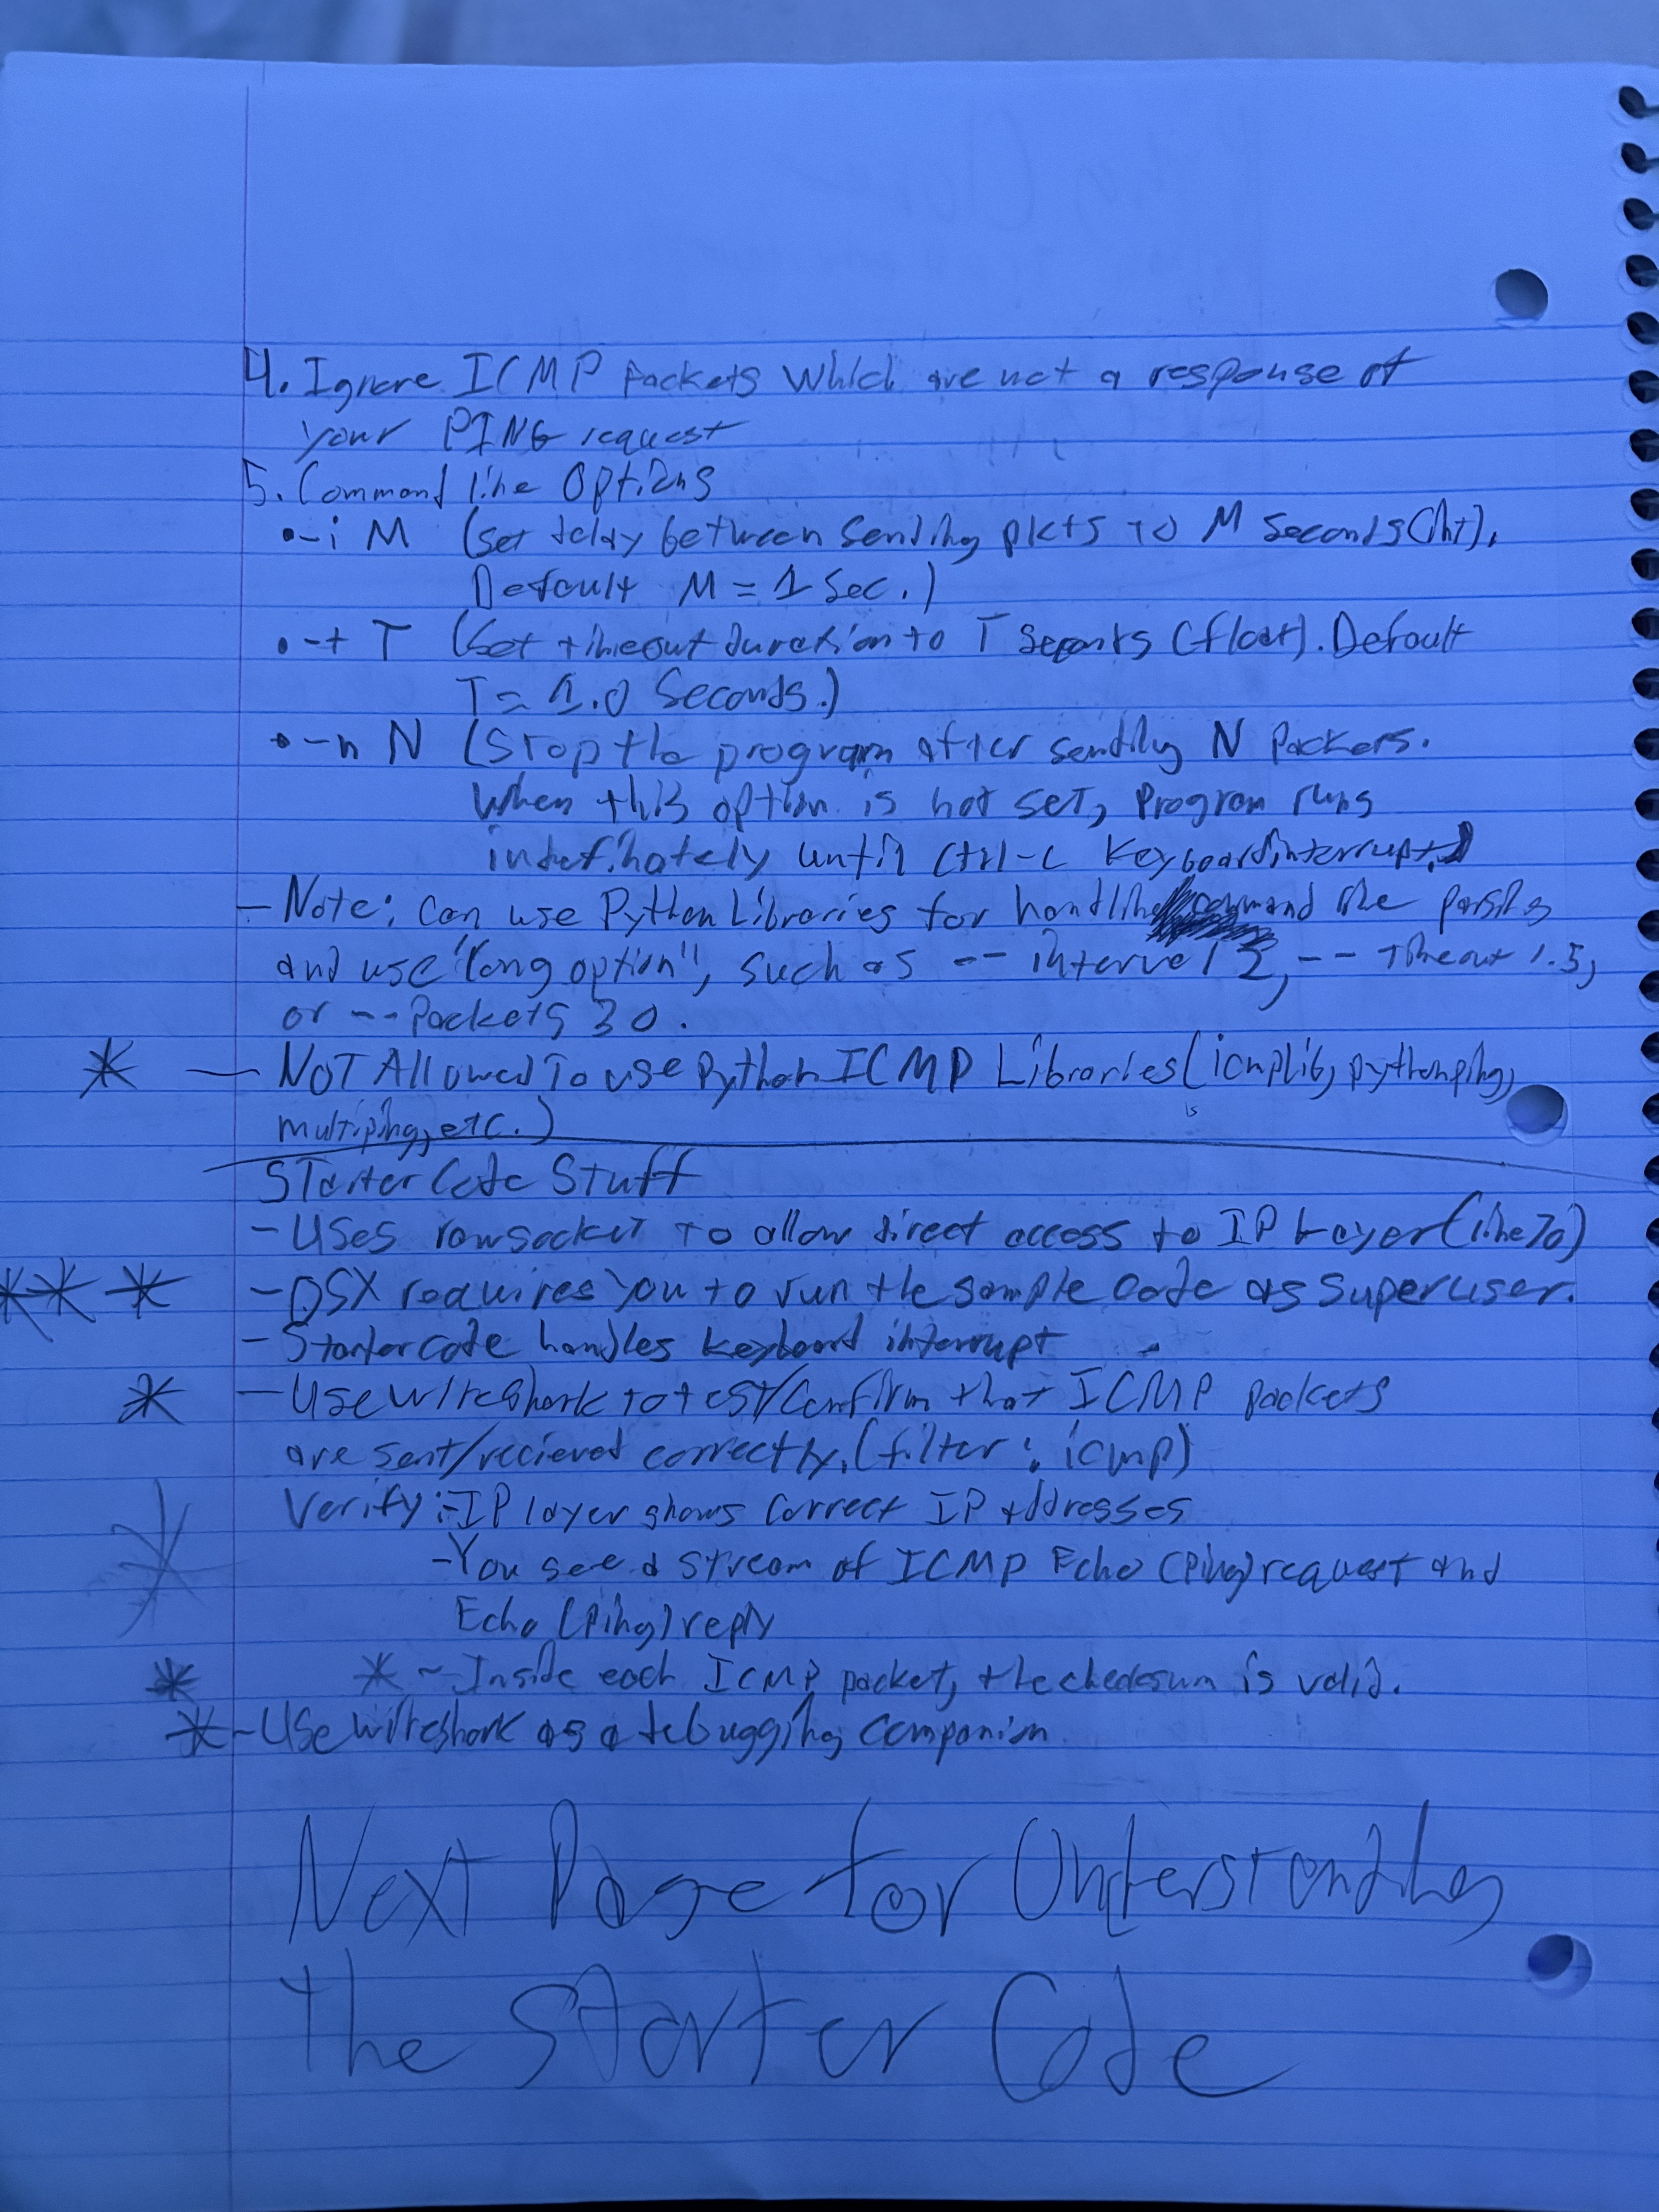 4. Ignore ICMP Packets which are not a response of
your PING request
5. Command line Options
•-i M (set delay between sending pkts to M seconds(int).
Default M = 1 Sec.)
•-t T (Set timeout duration to T seconds (float). Default
T = 1.0 Seconds.)
•-n N (Stop the program after sending N Packets.
When this option is not set, Program runs
indefinately until Ctrl-C Keyboardinterrupt.)
- Note: Can use Python Libraries for handling command line parsing
and use "long option", such as -- interval 2, -- Timeout 1.5,
or -- Packets 30.
* - NOT Allowed To use Python ICMP Libraries (icmplib, pythonping,
multiping, etc.)
Starter Code Stuff
- Uses rawsocket to allow direct access to IP Layer (line 70)
*** - OSX requires you to run the sample code as superuser.
- Starter code handles keyboard interrupt
* - Use wireshark to test/Confirm that ICMP packets
are sent/recieved correctly. (filter: icmp)
Verify: - IP layer shows Correct IP addresses
- You see a stream of ICMP Echo (Ping) request and
Echo (Ping) reply
* * - Inside each ICMP packet, the checksum is valid.
* - Use wireshark as a debugging companion
Next Page for Understanding
The Starter Code